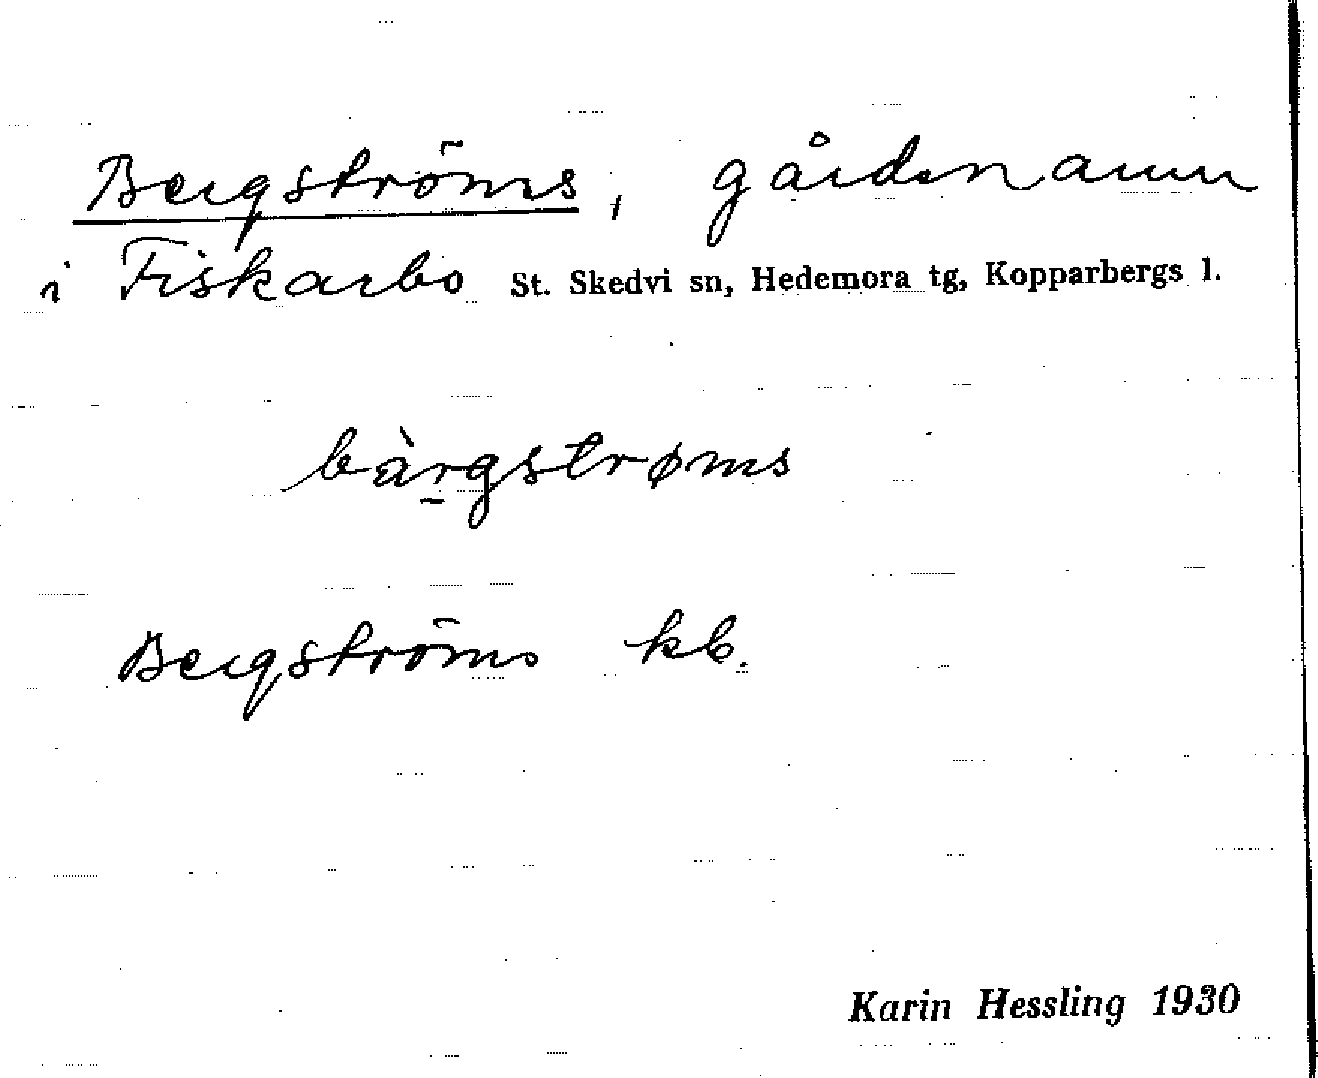 Bergströms, gårdsnamn
i Fiskarbo St. Skedvi sn, Hedemora tg, Kopparbergs l.
bàrgstrøms
Bergströms kb.
Karin Hessling 1930